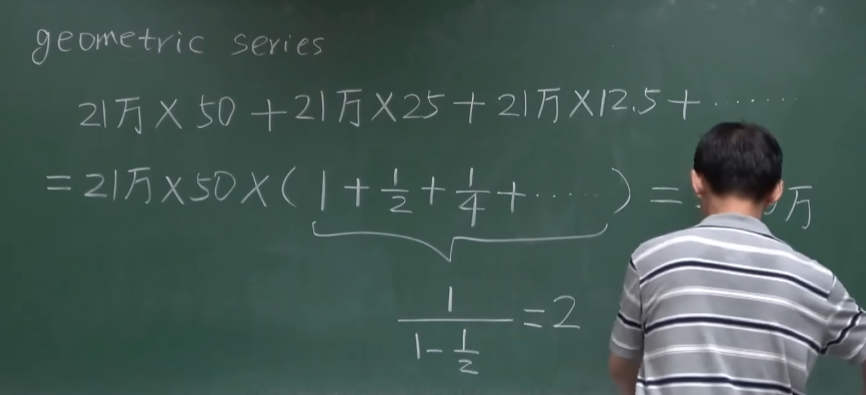 geometric series
21万×50+21万×25+21万×12.5+⋯⋯
=21万×50×(1+1/2+1/4+⋯⋯)= 万
1/(1-1/2)=2